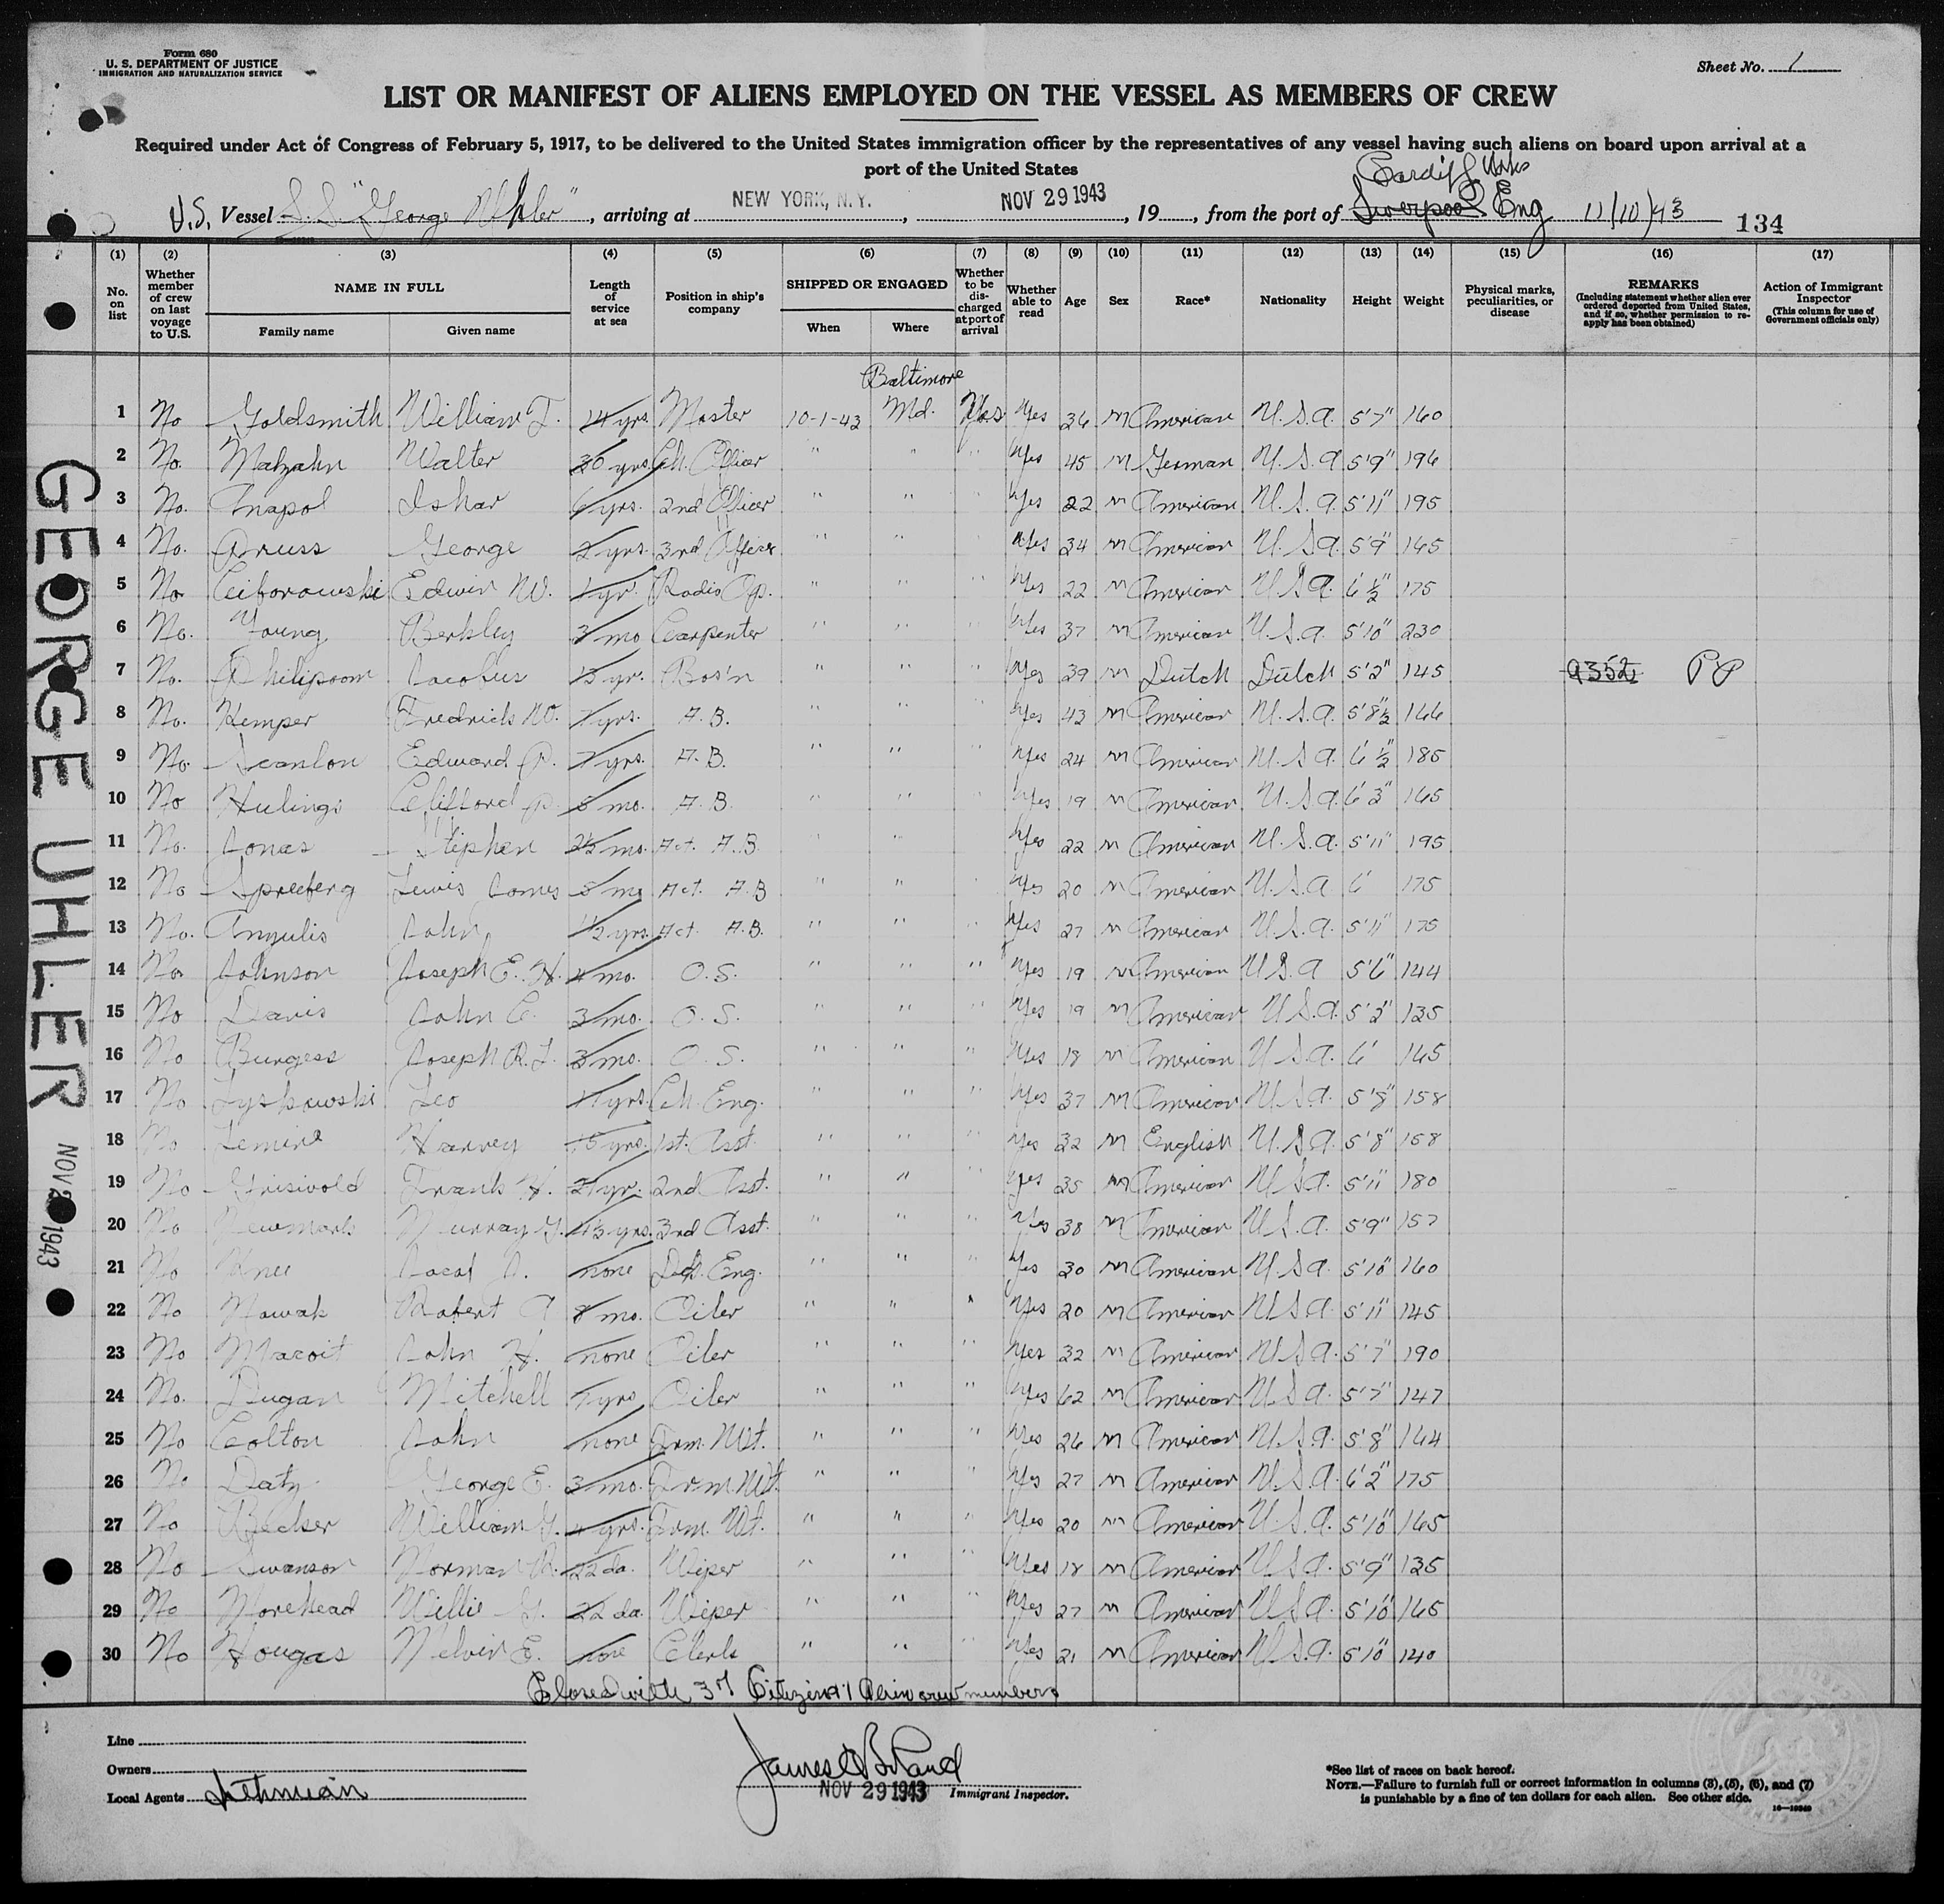 Form 680
U. S. DEPARTMENT OF JUSTICE
IMMIGRATION AND NATURALIZATION SERVICE
Sheet No. 1
LIST OR MANIFEST OF ALIENS EMPLOYED ON THE VESSEL AS MEMBERS OF CREW
Required under Act of Congress of February 5, 1917, to be delivered to the United States immigration officer by the representatives of any vessel having such aliens on board upon arrival at a
port of the United States
Cardiff
U.S. Vessel S.S. "George Uhler", arriving at NEW YORK, N.Y., NOV 29 1943, 19, from the port of Liverpool Eng 11/10/43 134
(1) (2) (3) (4) (5) (6) (7) (8) (9) (10) (11) (12) (13) (14) (15) (16) (17)
No. on list
Whether member of crew on last voyage to U.S.
NAME IN FULL
Family name Given name
Length of service at sea
Position in ship's company
SHIPPED OR ENGAGED
When Where
Whether to be discharged at port of arrival
Whether able to read
Age
Sex
Race*
Nationality
Height
Weight
Physical marks, peculiarities, or disease
REMARKS
(Including statement whether alien ever ordered deported from United States, and if so, whether permission to re-apply has been obtained)
Action of Immigrant Inspector
(This column for use of Government officials only)
Baltimore
1 No Goldsmith William T. 14 yrs. Master 10-1-43 Md. Yes Yes 36 M American U.S.A. 5'7" 160
2 No. Malzahn Walter 30 yrs. Ch. Officer " " " Yes 45 M German U.S.A. 5'9" 196
3 No. Anapol Ishar 6 yrs. 2nd Officer " " " Yes 22 M American U.S.A. 5'11" 195
4 No. George 2 yrs. 3rd Officer " " " Yes 34 M American U.S.A. 5'9" 165
5 No Ciborowski Edwin W. 1 yr. Radio Op. " " " Yes 22 M American U.S.A. 6'½" 175
6 No. Young Berkley 3 mo Carpenter " " " Yes 37 M American U.S.A. 5'10" 230
7 No. Philipoom Jacobus yr. Bos'n " " " Yes 39 M Dutch Dutch 5'2" 145 9352 PP
8 No. Kemper Fredrick W. 7 yrs. A.B. " " " Yes 43 M American U.S.A. 5'8½ 166
9 No. Scanlon Edward P. 7 yrs. A.B. " " " Yes 24 M American U.S.A. 6'½" 185
10 No Hulings Clifford P. 8 mo. A.B. " " " Yes 19 M American U.S.A. 6'3" 165
11 No. Jonas Stephen 2½ mo. Act. A.B. " " " Yes 22 M American U.S.A. 5'11" 195
12 No Spreeberg Lewis James mo Act. A.B " " " Yes 20 M American U.S.A. 6' 175
13 No. John 1½ yrs. Act. A.B. " " " Yes 27 M American U.S.A. 5'11" 175
14 No Johnson Joseph E. H. 4 mo. O.S. " " " Yes 19 M American U.S.A 5'6" 144
15 No Davis John C. 3 mo. O.S. " " " Yes 19 M American U.S.A. 5'3" 135
16 No Burgess Joseph R. 3 mo. O.S. " " " Yes 18 M American U.S.A. 6' 165
17 No Lyskowski Leo yrs. Ch. Eng. " " " Yes 37 M American U.S.A. 5'8" 158
18 No Lemire Harvey 15 yrs. 1st. Asst. " " " Yes 32 M English U.S.A. 5'8" 158
19 No Griswold Frank H. yr. 2nd Asst. " " " Yes 35 M American U.S.A. 5'11" 180
20 No Newmark Murray G. yrs. 3rd Asst. " " " Yes 38 M American U.S.A. 5'9" 157
21 No none Dk. Eng. " " " Yes 30 M American U.S.A. 5'10" 160
22 No Nowak Robert A 8 mo. Oiler " " " Yes 20 M American U.S.A. 5'11" 145
23 No John H. none Oiler " " " Yes 32 M American U.S.A. 5'7" 190
24 No. Dugan Mitchell 7 yrs Oiler " " " Yes 62 M American U.S.A. 5'7" 147
25 No Colton John none Frm. Wt. " " " Yes 26 M American U.S.A. 5'8" 164
26 No Daty George E. 3 mo. Frm. Wt. " " " Yes 27 M American U.S.A. 6'2" 175
27 No Becker William G. yrs. Frm. Wt. " " " Yes 20 M American U.S.A. 5'10" 165
28 No Swanson Norman R. 22 da. Wiper " " " Yes 18 M American U.S.A. 5'9" 135
29 No Morehead Willie G. 22 da. Wiper " " " Yes 27 M American U.S.A. 5'10" 165
30 No Hougas Melvin E. none Clerk " " " Yes 21 M American U.S.A. 5'10" 140
Closed with 37 Citizens & 1 Alien crew members
GEORGE UHLER NOV 29 1943
Line
Owners
Local Agents
NOV 29 1943 Immigrant Inspector.
*See list of races on back hereof.
NOTE.—Failure to furnish full or correct information in columns (3), (5), (6), and (7)
is punishable by a fine of ten dollars for each alien. See other side.